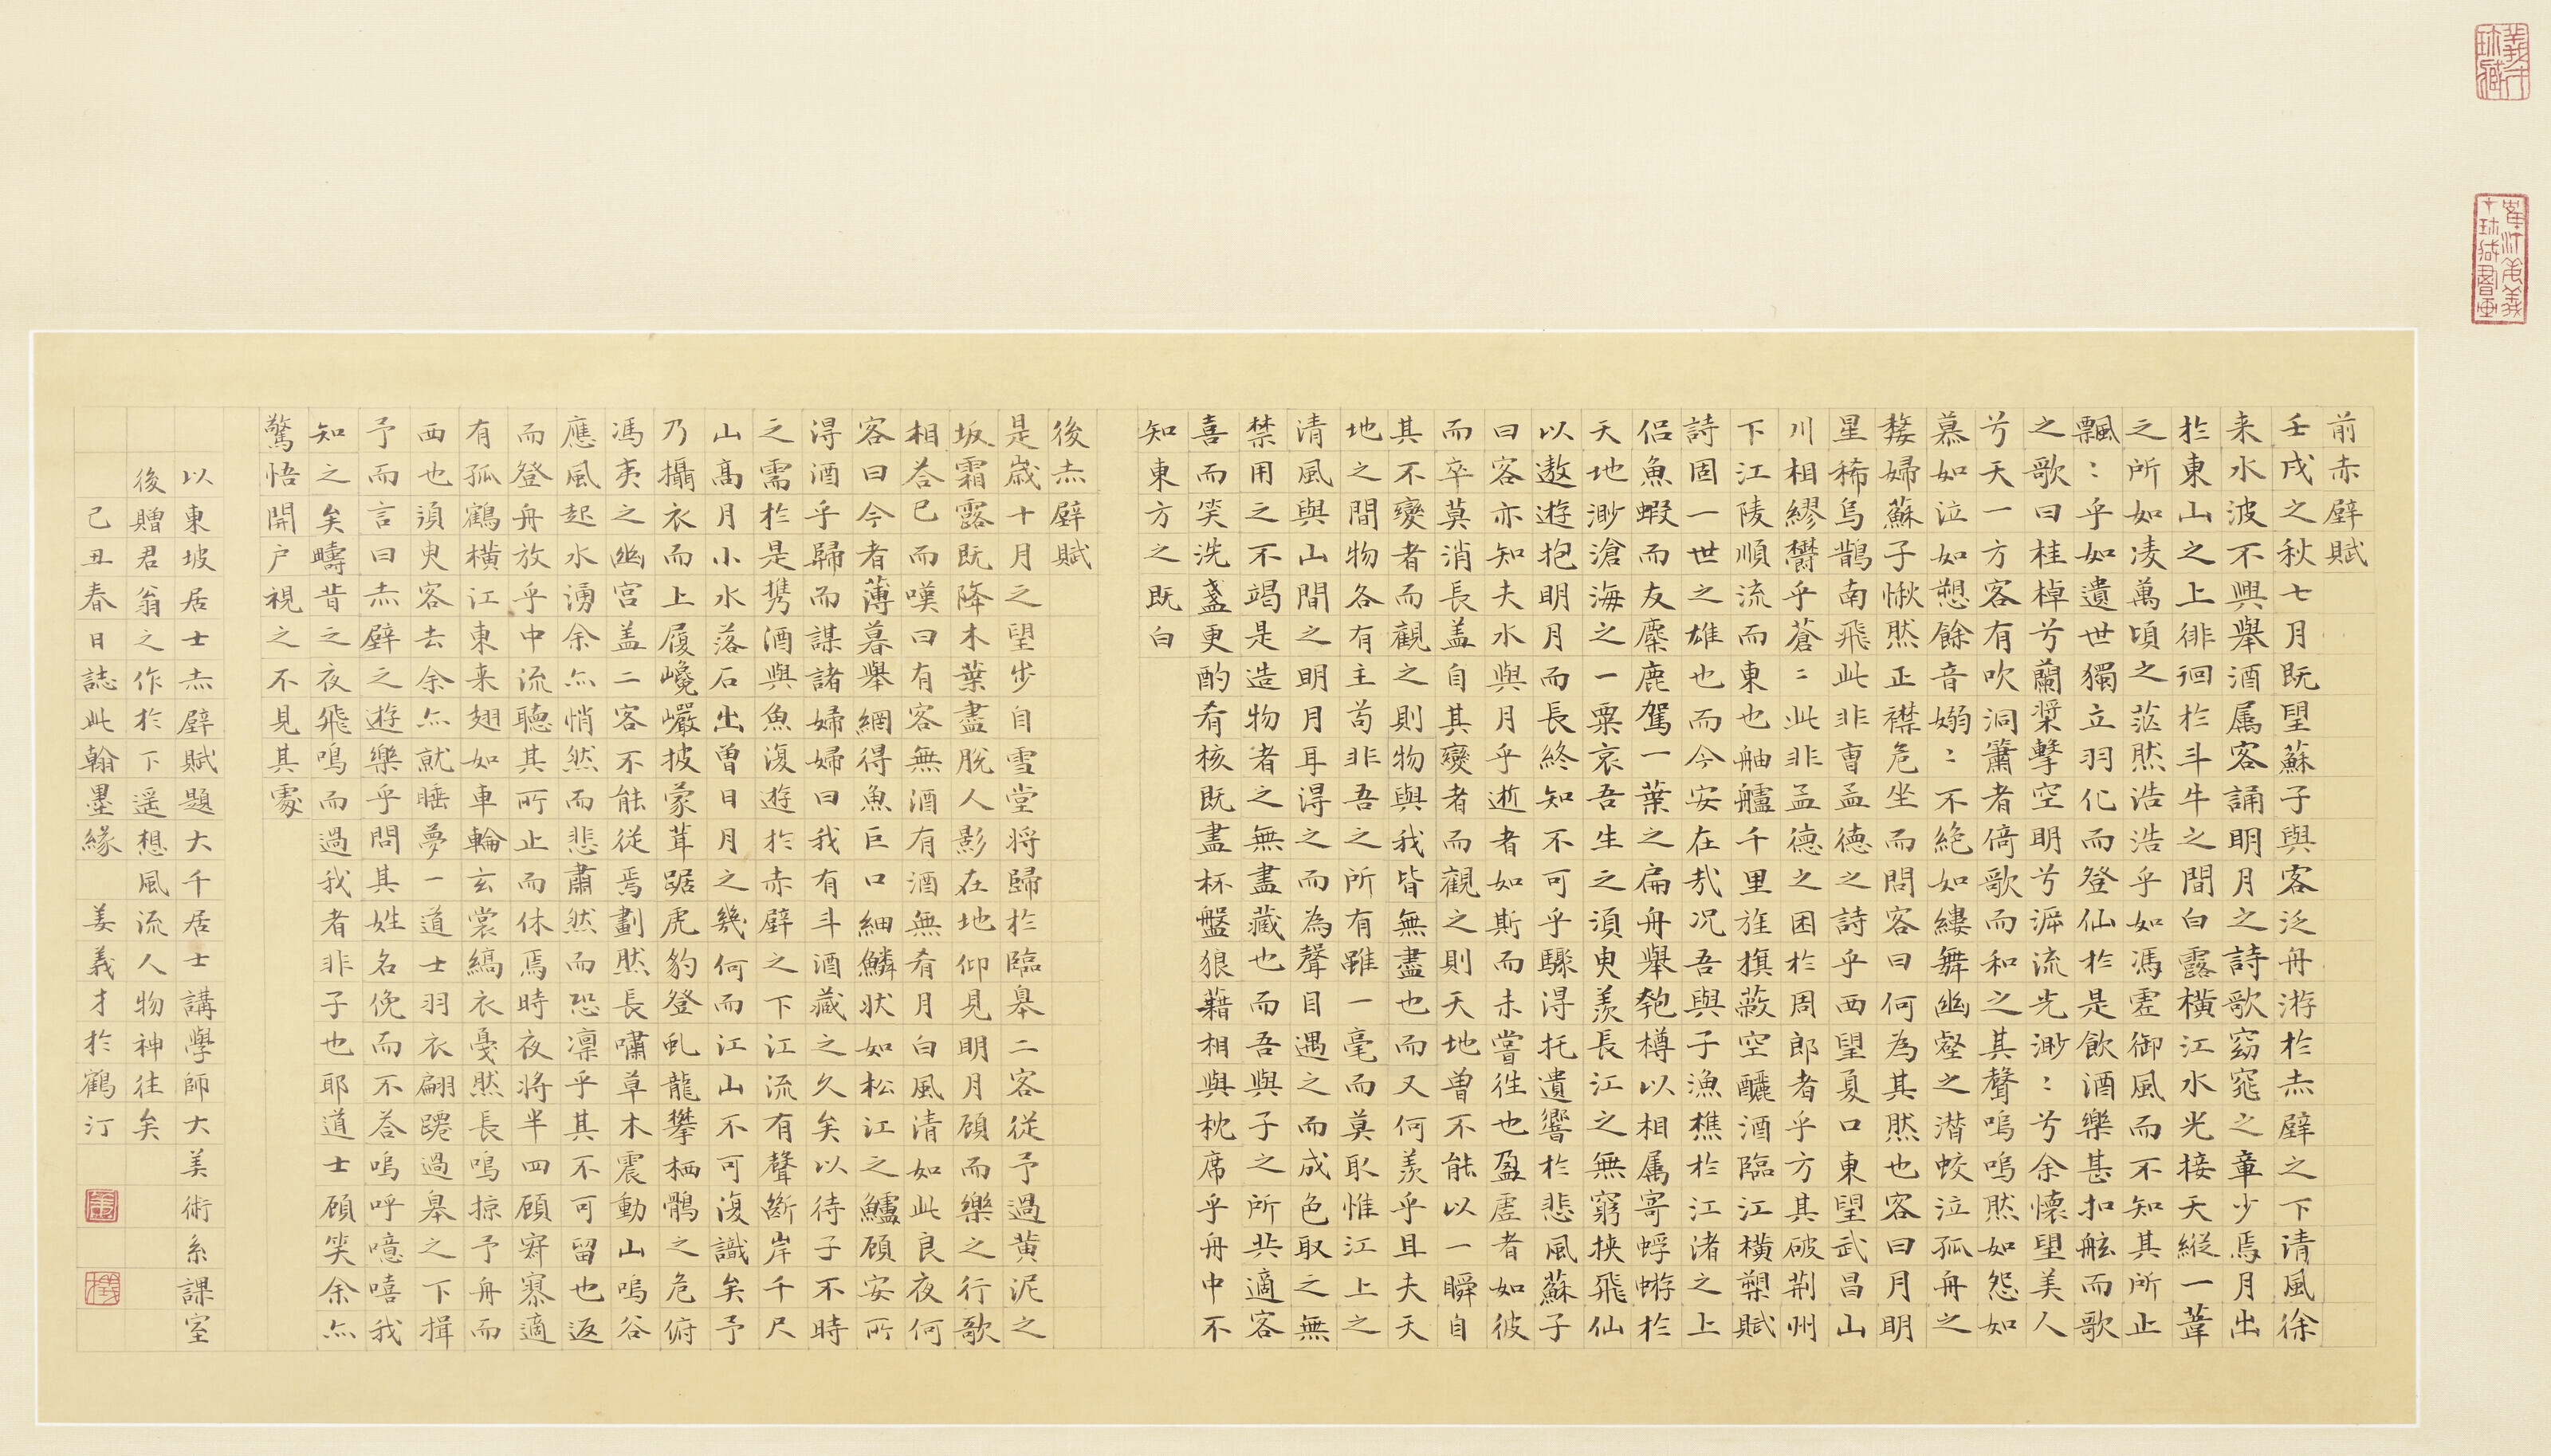 前赤壁賦
壬戌之秋七月既望蘇子與客泛舟游於赤壁之下清風徐
来水波不興舉酒属客誦明月之詩歌窈窕之章少焉月出
於東山之上徘徊於斗牛之間白露橫江水光接天縱一葦
之所如凌萬頃之茫然浩浩乎如馮虛御風而不知其所止
飄：乎如遺世獨立羽化而登仙於是飲酒樂甚扣舷而歌
之歌曰桂棹兮蘭槳擊空明兮泝流光渺：兮余懷望美人
兮天一方客有吹洞簫者倚歌而和之其聲嗚嗚然如怨如
慕如泣如愬餘音嫋：不絕如縷舞幽壑之潛蛟泣孤舟之
嫠婦蘇子愀然正襟危坐而問客曰何為其然也客曰月明
星稀烏鵲南飛此非曹孟德之詩乎西望夏口東望武昌山
川相繆鬱乎蒼：此非孟德之困於周郎者乎方其破荆州
下江陵順流而東也舳艫千里旌旗蔽空釃酒臨江橫槊賦
詩固一世之雄也而今安在哉况吾與子漁樵於江渚之上
侣魚蝦而友麋鹿駕一葉之扁舟舉匏樽以相属寄蜉蝣於
天地渺滄海之一粟哀吾生之須臾羨長江之無窮挾飛仙
以遨遊抱明月而長終知不可乎驟得托遺響於悲風蘇子
曰客亦知夫水與月乎逝者如斯而未嘗往也盈虛者如彼
而卒莫消長盖自其變者而觀之則天地曾不能以一瞬自
其不變者而觀之則物與我皆無盡也而又何羨乎且夫天
地之間物各有主苟非吾之所有雖一毫而莫取惟江上之
清風與山間之明月耳得之而為聲目遇之而成色取之無
禁用之不竭是造物者之無盡藏也而吾與子之所共適客
喜而笑洗盞更酌肴核既盡杯盤狼藉相與枕席乎舟中不
知東方之既白
後赤壁賦
是歲十月之望步自雪堂將歸於臨皋二客從予過黄泥之
坂霜露既降木葉盡脫人影在地仰見明月顧而樂之行歌
相答已而嘆曰有客無酒有酒無肴月白風清如此良夜何
客曰今者薄暮舉網得魚巨口細鱗狀如松江之鱸顧安所
得酒乎歸而謀諸婦婦曰我有斗酒藏之久矣以待子不時
之需於是携酒與魚復遊於赤壁之下江流有聲斷岸千尺
山高月小水落石出曾日月之幾何而江山不可復識矣予
乃攝衣而上履巉巖披蒙茸踞虎豹登虬龍攀栖鶻之危俯
馮夷之幽宮盖二客不能從焉劃然長嘯草木震動山鳴谷
應風起水湧余亦悄然而悲肅然而恐凛乎其不可留也返
而登舟放乎中流聽其所止而休焉時夜將半四顧寂寥適
有孤鶴橫江東来翅如車輪玄裳縞衣戛然長鳴掠予舟而
西也須臾客去余亦就睡夢一道士羽衣翩躚過皋之下揖
予而言曰赤壁之遊樂乎問其姓名俛而不答嗚呼噫嘻我
知之矣疇昔之夜飛鳴而過我者非子也耶道士顧笑余亦
驚悟開户視之不見其處
以東坡居士赤壁賦題大千居士講學師大美術系課室
後贈君翁之作於下遥想風流人物神往矣
己丑春日誌此翰墨緣 姜義才於鶴汀